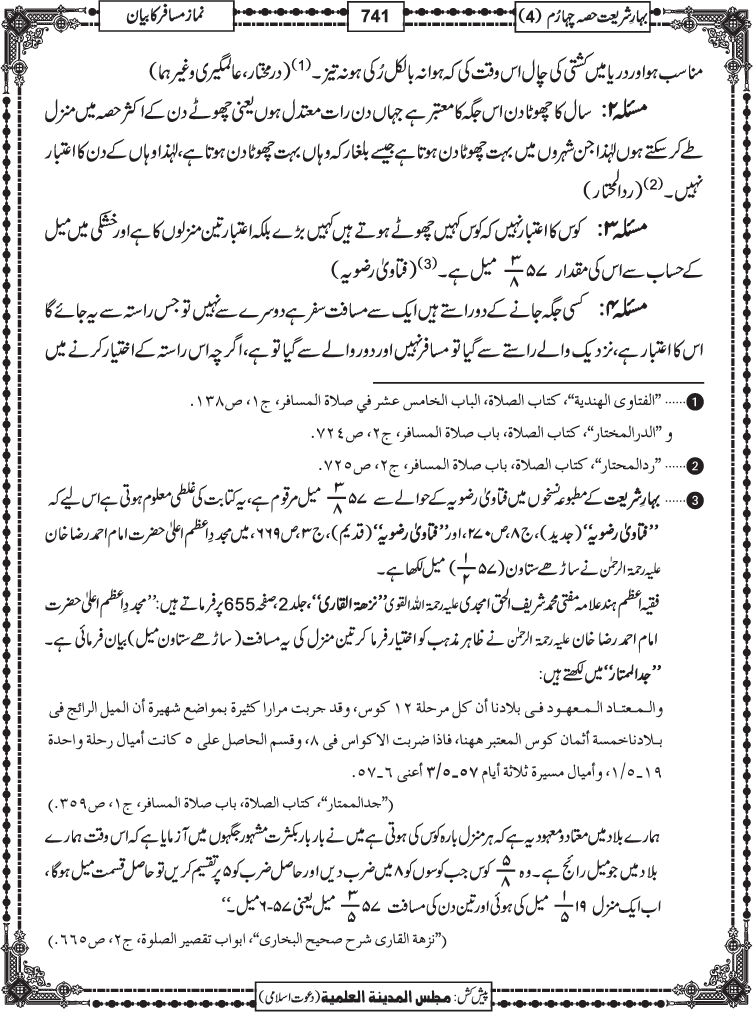 بہارِ شریعت حصہ چہارم (4)
741
نمازِ مسافر کا بیان
مناسب ہو اور دریا میں کشتی کی چال اس وقت کی کہ ہوا نہ بالکل رُکی ہو نہ تیز۔(1) (درمختار، عالمگیری وغیرہما)
مسئلہ ۲: سال کا چھوٹا دن اس جگہ کا معتبر ہے جہاں دن رات معتدل ہوں یعنی چھوٹے دن کے اکثر حصہ میں منزل
طے کر سکتے ہوں لہٰذا جن شہروں میں بہت چھوٹا دن ہوتا ہے جیسے بلغار کہ وہاں بہت چھوٹا دن ہوتا ہے، لہٰذا وہاں کے دن کا اعتبار
نہیں۔(2) (ردالمحتار)
مسئلہ ۳: کوس کا اعتبار نہیں کہ کوس کہیں چھوٹے ہوتے ہیں کہیں بڑے بلکہ اعتبار تین منزلوں کا ہے اور خشکی میں میل
کے حساب سے اس کی مقدار ۵۷ ۳/۸ میل ہے۔(3) (فتاویٰ رضویہ)
مسئلہ ۴: کسی جگہ جانے کے دو راستے ہیں ایک سے مسافت سفر ہے دوسرے سے نہیں تو جس راستہ سے یہ جائے گا
اس کا اعتبار ہے، نزدیک والے راستے سے گیا تو مسافر نہیں اور دور والے سے گیا تو ہے، اگرچہ اس راستہ کے اختیار کرنے میں
1 ...... ”الفتاوی الهندية“، كتاب الصلاة، الباب الخامس عشر في صلاة المسافر، ج۱، ص۱۳۸.
و ”الدرالمختار“، كتاب الصلاة، باب صلاة المسافر، ج۲، ص۷۲٤.
2 ...... ”ردالمحتار“، كتاب الصلاة، باب صلاة المسافر، ج۲، ص۷۲٥.
3 ...... بہارِ شریعت کے مطبوعہ نسخوں میں فتاویٰ رضویہ کے حوالے سے ۵۷ ۳/۸ میل مرقوم ہے، یہ کتابت کی غلطی معلوم ہوتی ہے اس لیے کہ
”فتاویٰ رضویہ“ (جدید)، ج۸، ص۲۷۰، اور ”فتاویٰ رضویہ“ (قدیم)، ج۳، ص۶۶۹، میں مجددِ اعظم اعلیٰ حضرت امام احمد رضا خان
علیہ رحمۃ الرحمٰن نے ساڑھے ستاون (۵۷ ۱/۲) میل لکھا ہے۔
فقیہ اعظم ہند علامہ مفتی محمد شریف الحق امجدی علیہ رحمۃ اللہ القوی ”نزھة القاری“، جلد 2، صفحہ 655 پر فرماتے ہیں: ”مجددِ اعظم اعلیٰ حضرت
امام احمد رضا خان علیہ رحمۃ الرحمٰن نے ظاہر مذہب کو اختیار فرما کر تین منزل کی یہ مسافت (ساڑھے ستاون میل) بیان فرمائی ہے۔
”جدالممتار“ میں لکھتے ہیں:
والـمـعتـاد الـمـعهـود فـی بـلادنا أن كل مرحلة ۱۲ كوس، وقد جربت مرارا كثيرة بمواضع شهيرة أن الميل الرائج فی
بـلادنا خمسة أثمان كوس المعتبر ههنا، فاذا ضربت الاكواس فی ۸، وقسم الحاصل علی ٥ كانت أميال رحلة واحدة
۱۹ـ۱/٥، وأميال مسيرة ثلاثة أيام ٥۷ـ۳/٥ أعنی ٦ـ٥۷.
(”جدالممتار“، كتاب الصلاة، باب صلاة المسافر، ج۱، ص۳٥۹.)
ہمارے بلاد میں معتاد و معہود یہ ہے کہ ہر منزل بارہ کوس کی ہوتی ہے میں نے بار بار بکثرت مشہور جگہوں میں آزمایا ہے کہ اس وقت ہمارے
بلاد میں جو میل رائج ہے۔ وہ ۵/۸ کوس جب کوسوں کو ۸ میں ضرب دیں اور حاصل ضرب کو ۵ پر تقسیم کریں تو حاصل قسمت میل ہوگا،
اب ایک منزل ۱۹ ۱/۵ میل کی ہوئی اور تین دن کی مسافت ۵۷ ۳/۵ میل یعنی ۵۷-۶ میل۔“
(”نزهة القاری شرح صحيح البخاری“، ابواب تقصير الصلوة، ج۲، ص٦٦٥.)
پیش کش: مجلس المدينة العلمية (دعوتِ اسلامی)